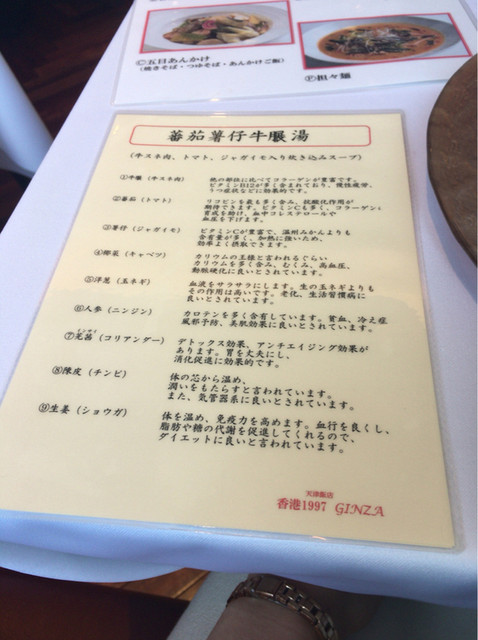 Ⓒ五目あんかけ
(焼きそば・つゆそば・あんかけご飯)
Ⓕ担々麺
蕃茄薯仔牛𦟌湯
(牛スネ肉、トマト、ジャガイモ入り炊き込みスープ)
①牛𦟌(牛スネ肉) 他の部位に比べてコラーゲンが豊富です。
ビタミンB12が多く含まれており、慢性疲労、
うつ症状などに効果的です。
②蕃茄(トマト) リコピンを最も多く含み、抗酸化作用が
期待できます。ビタミンCも多く、コラーゲン
育成を助け、血中コレステロールや
血圧を下げます。
③薯仔(ジャガイモ) ビタミンCが豊富で、温州みかんよりも
含有量が多く、加熱に強いため、
効率よく摂取できます。
④椰菜(キャベツ) カリウムの王様と言われるぐらい
カリウムを多く含み、むくみ、高血圧、
動脈硬化に良いとされています。
⑤洋葱(玉ネギ) 血液をサラサラにします。生の玉ネギよりも
その作用は高いです。老化、生活習慣病に
良いとされています。
⑥人参(ニンジン) カロテンを多く含有しています。貧血、冷え症
風邪予防、美肌効果に良いとされています。
⑦芫茜(コリアンダー) デトックス効果、アンチエイジング効果が
あります。胃を丈夫にし、
消化促進に効果的です。
⑧陳皮(チンピ) 体の芯から温め、
潤いをもたらすと言われています。
また、気管器系に良いとされています。
⑨生姜(ショウガ) 体を温め、免疫力を高めます。血行を良くし、
脂肪や糖の代謝を促進してくれるので、
ダイエットに良いと言われています。
天津飯店
香港1997 GINZA